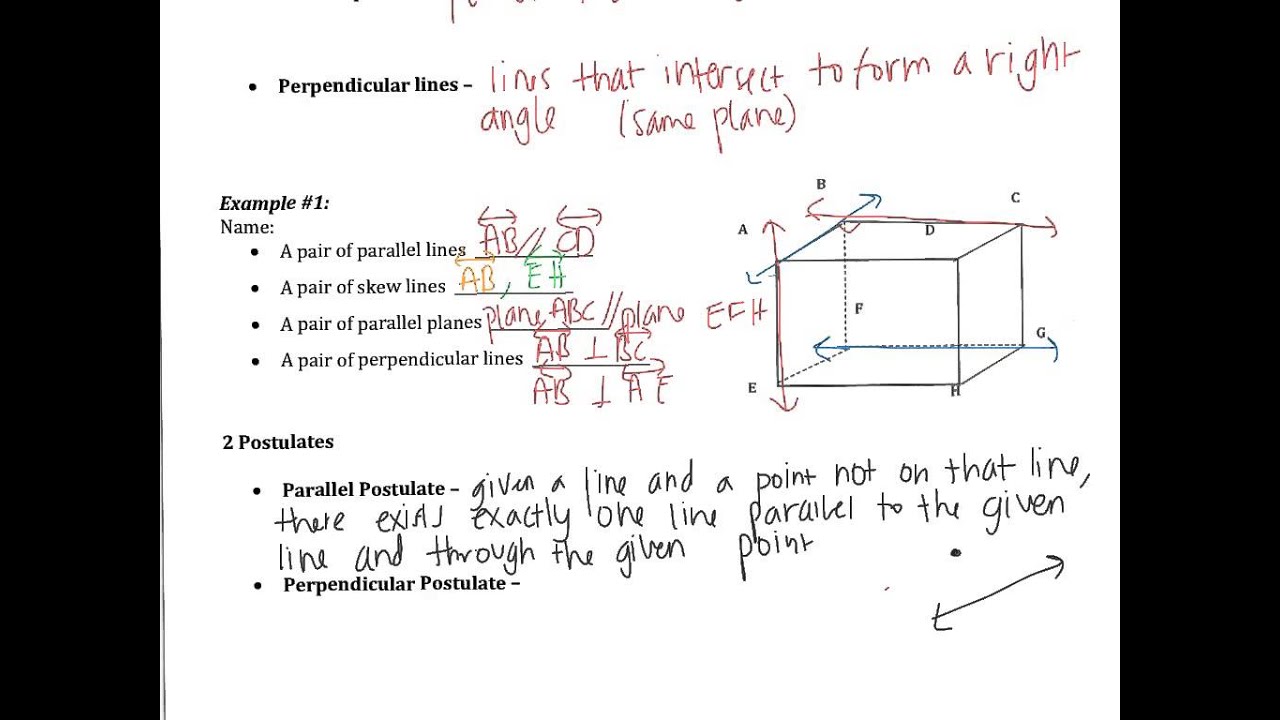 • Perpendicular lines – lines that intersect to form a right
angle (same plane)
Example #1:
Name:
• A pair of parallel lines AB // CD
• A pair of skew lines AB, EH
• A pair of parallel planes plane ABC // plane EFH
• A pair of perpendicular lines AB ⊥ BC
AB ⊥ AE
B
C
A
D
F
G
E
H
2 Postulates
• Parallel Postulate – given a line and a point not on that line,
there exists exactly one line parallel to the given
line and through the given point
• Perpendicular Postulate –